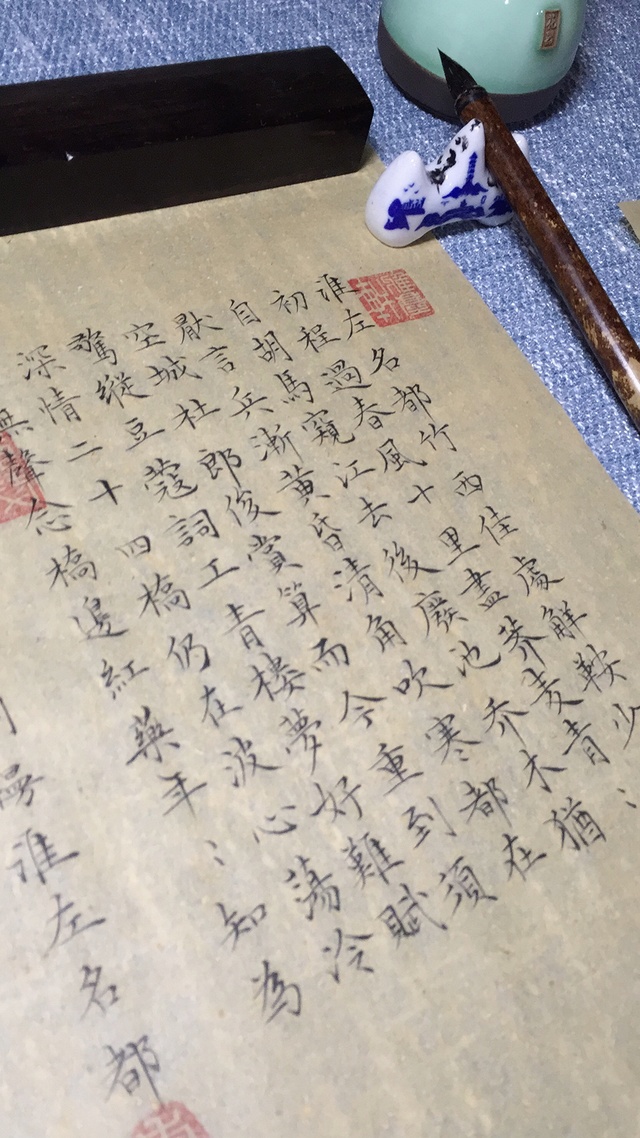 淮左名都竹西佳處解鞍少
初程過春風十里盡荠麦青:
自胡馬窺江去後廢池乔木猶
厭言兵漸黄昏清角吹寒都在
空城杜郎俊賞算而今重到須
驚縱豆蔻詞工青楼夢好難賦
深情二十四橋仍在波心蕩冷
無聲念橋邊紅藥年:知為
慢淮左名都